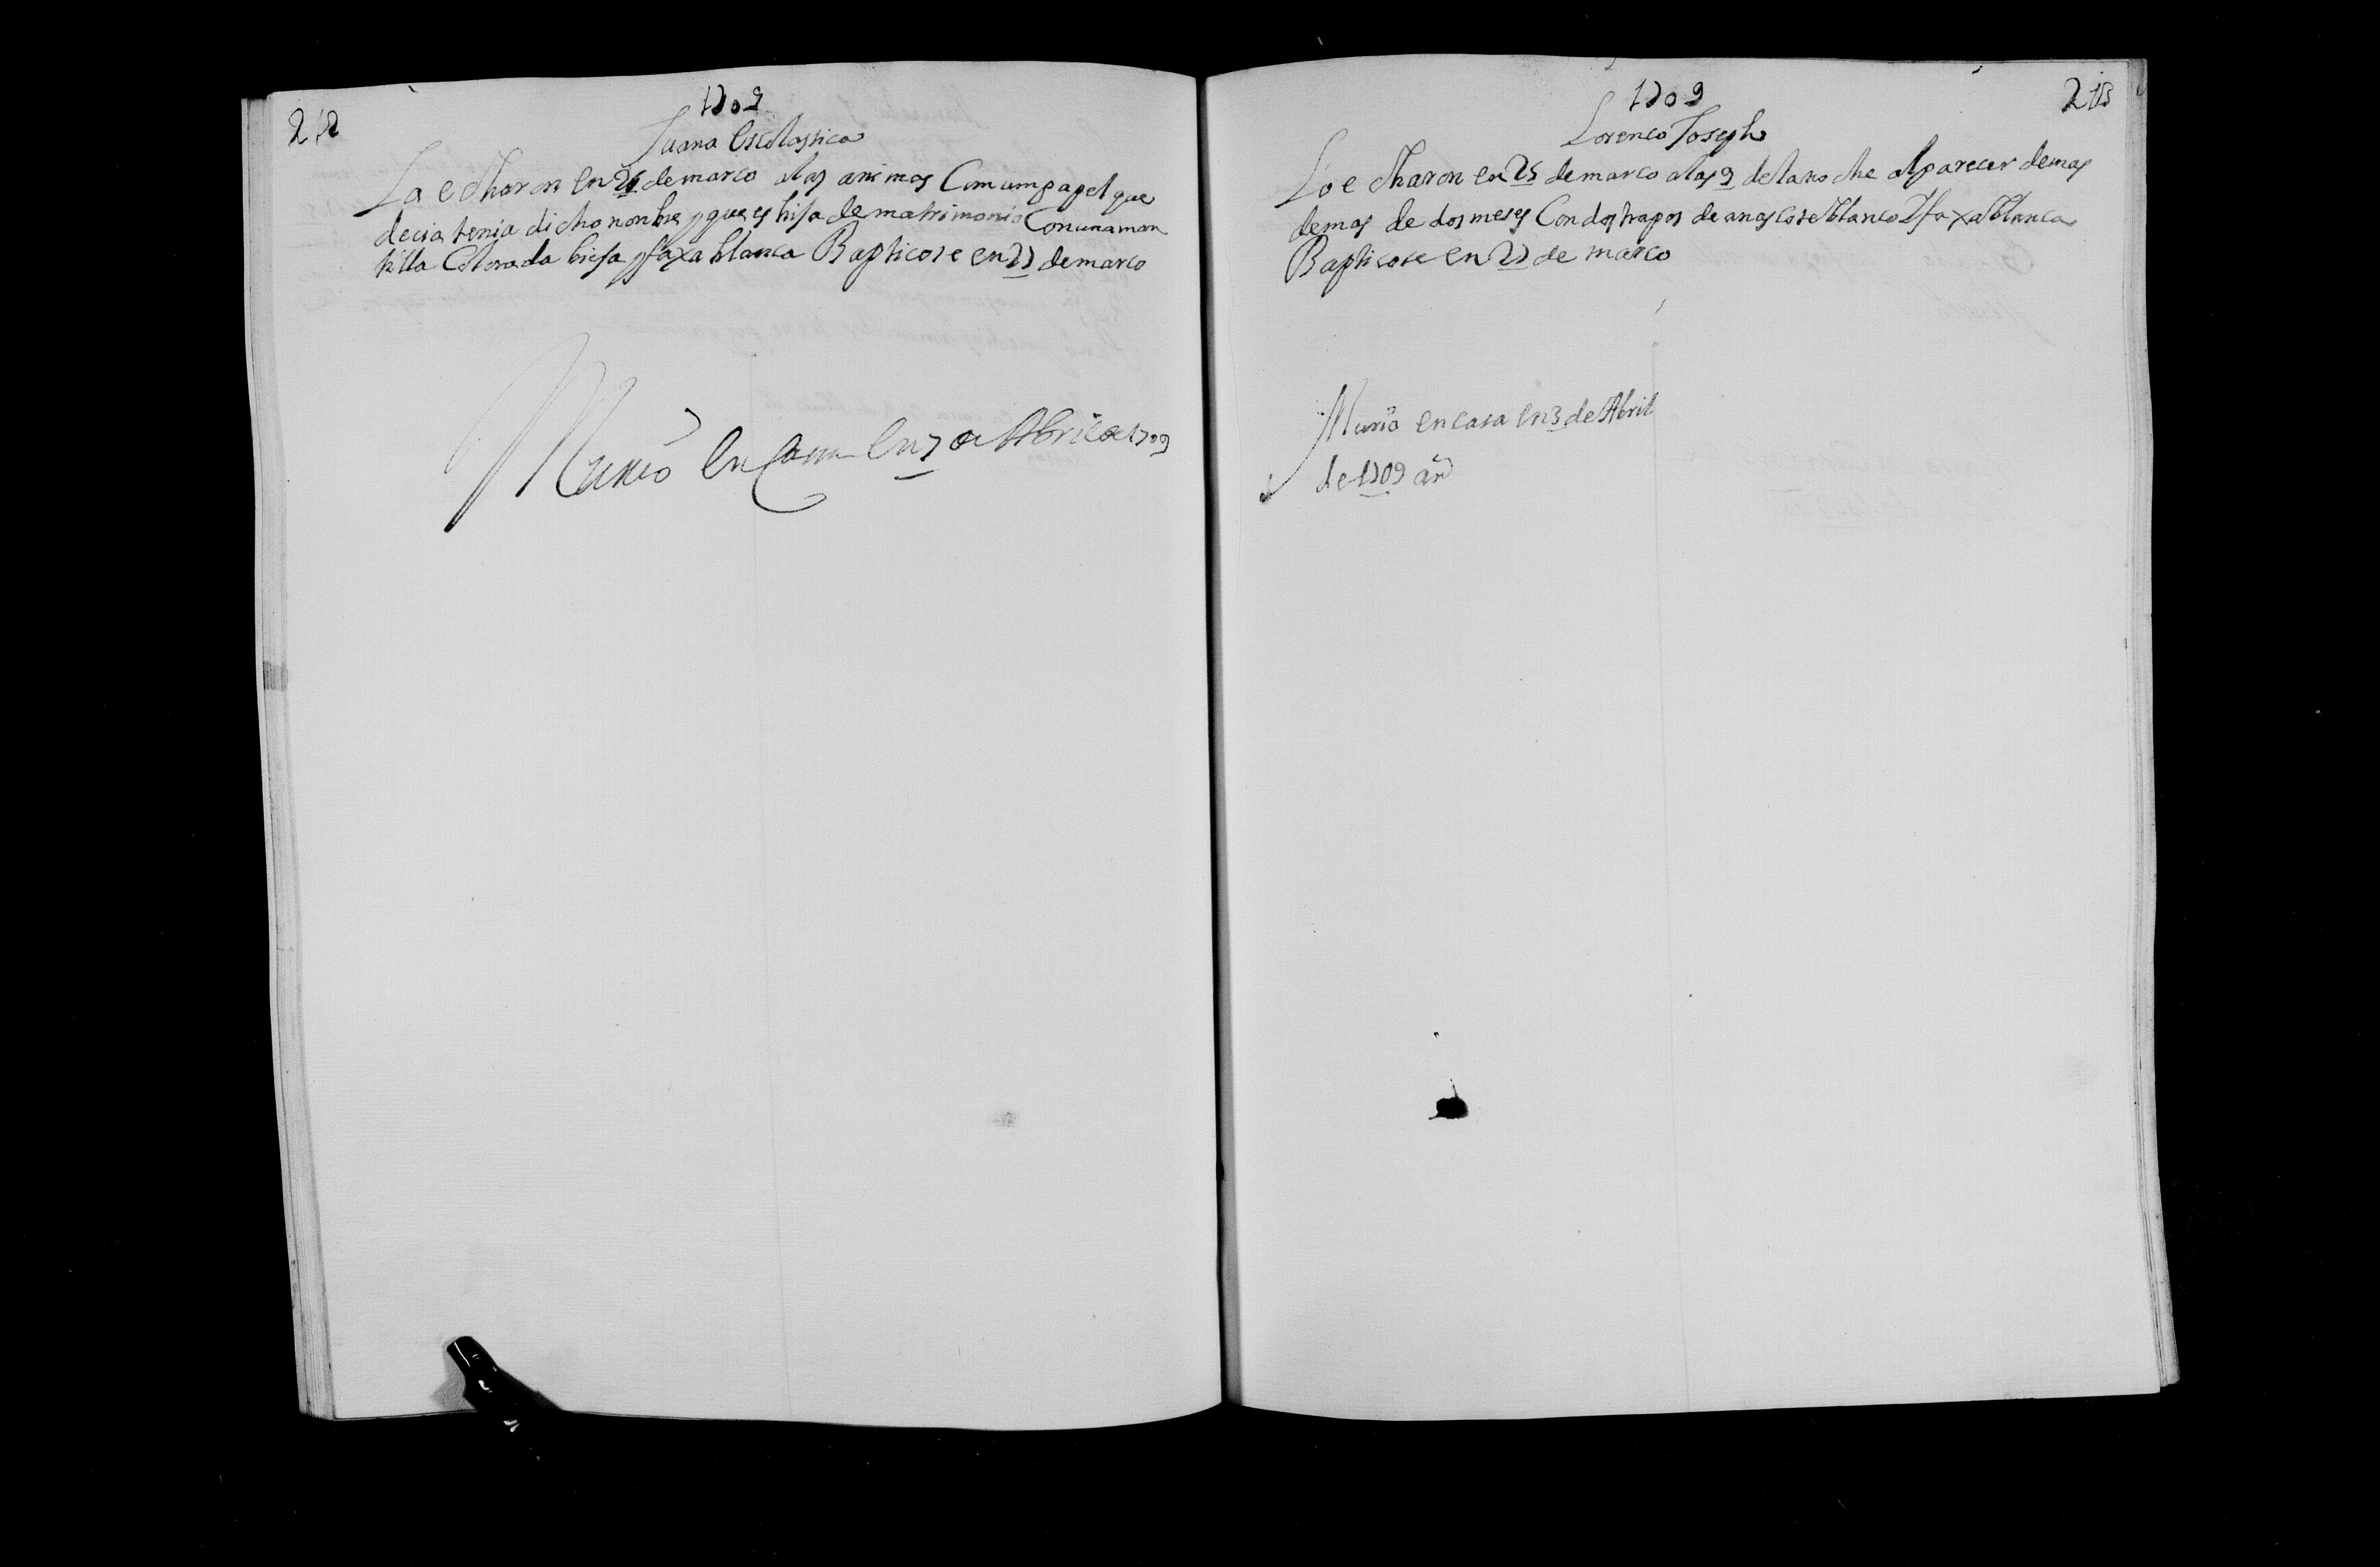 1709
Juana Escolastica
La echaron en de marco a las animas Com um papel que
decia tenia dicho nonbre y que es hija de matrimonio Con una man
tilla Colorada bieja y faxa blanca Bapticose en 27 de marco
Murió En Casa En 7 de Abril de 1709
1709
Lorenco Joseph
Lo echaron en 25 de marco a las 9 de la noche al parecer de mas
de mas de dos meses Con dos trapos de anascote blanco I faxa blanca
Bapticose en 27 de marco
Murió en casa en 3 de Abril
de 1709 añ